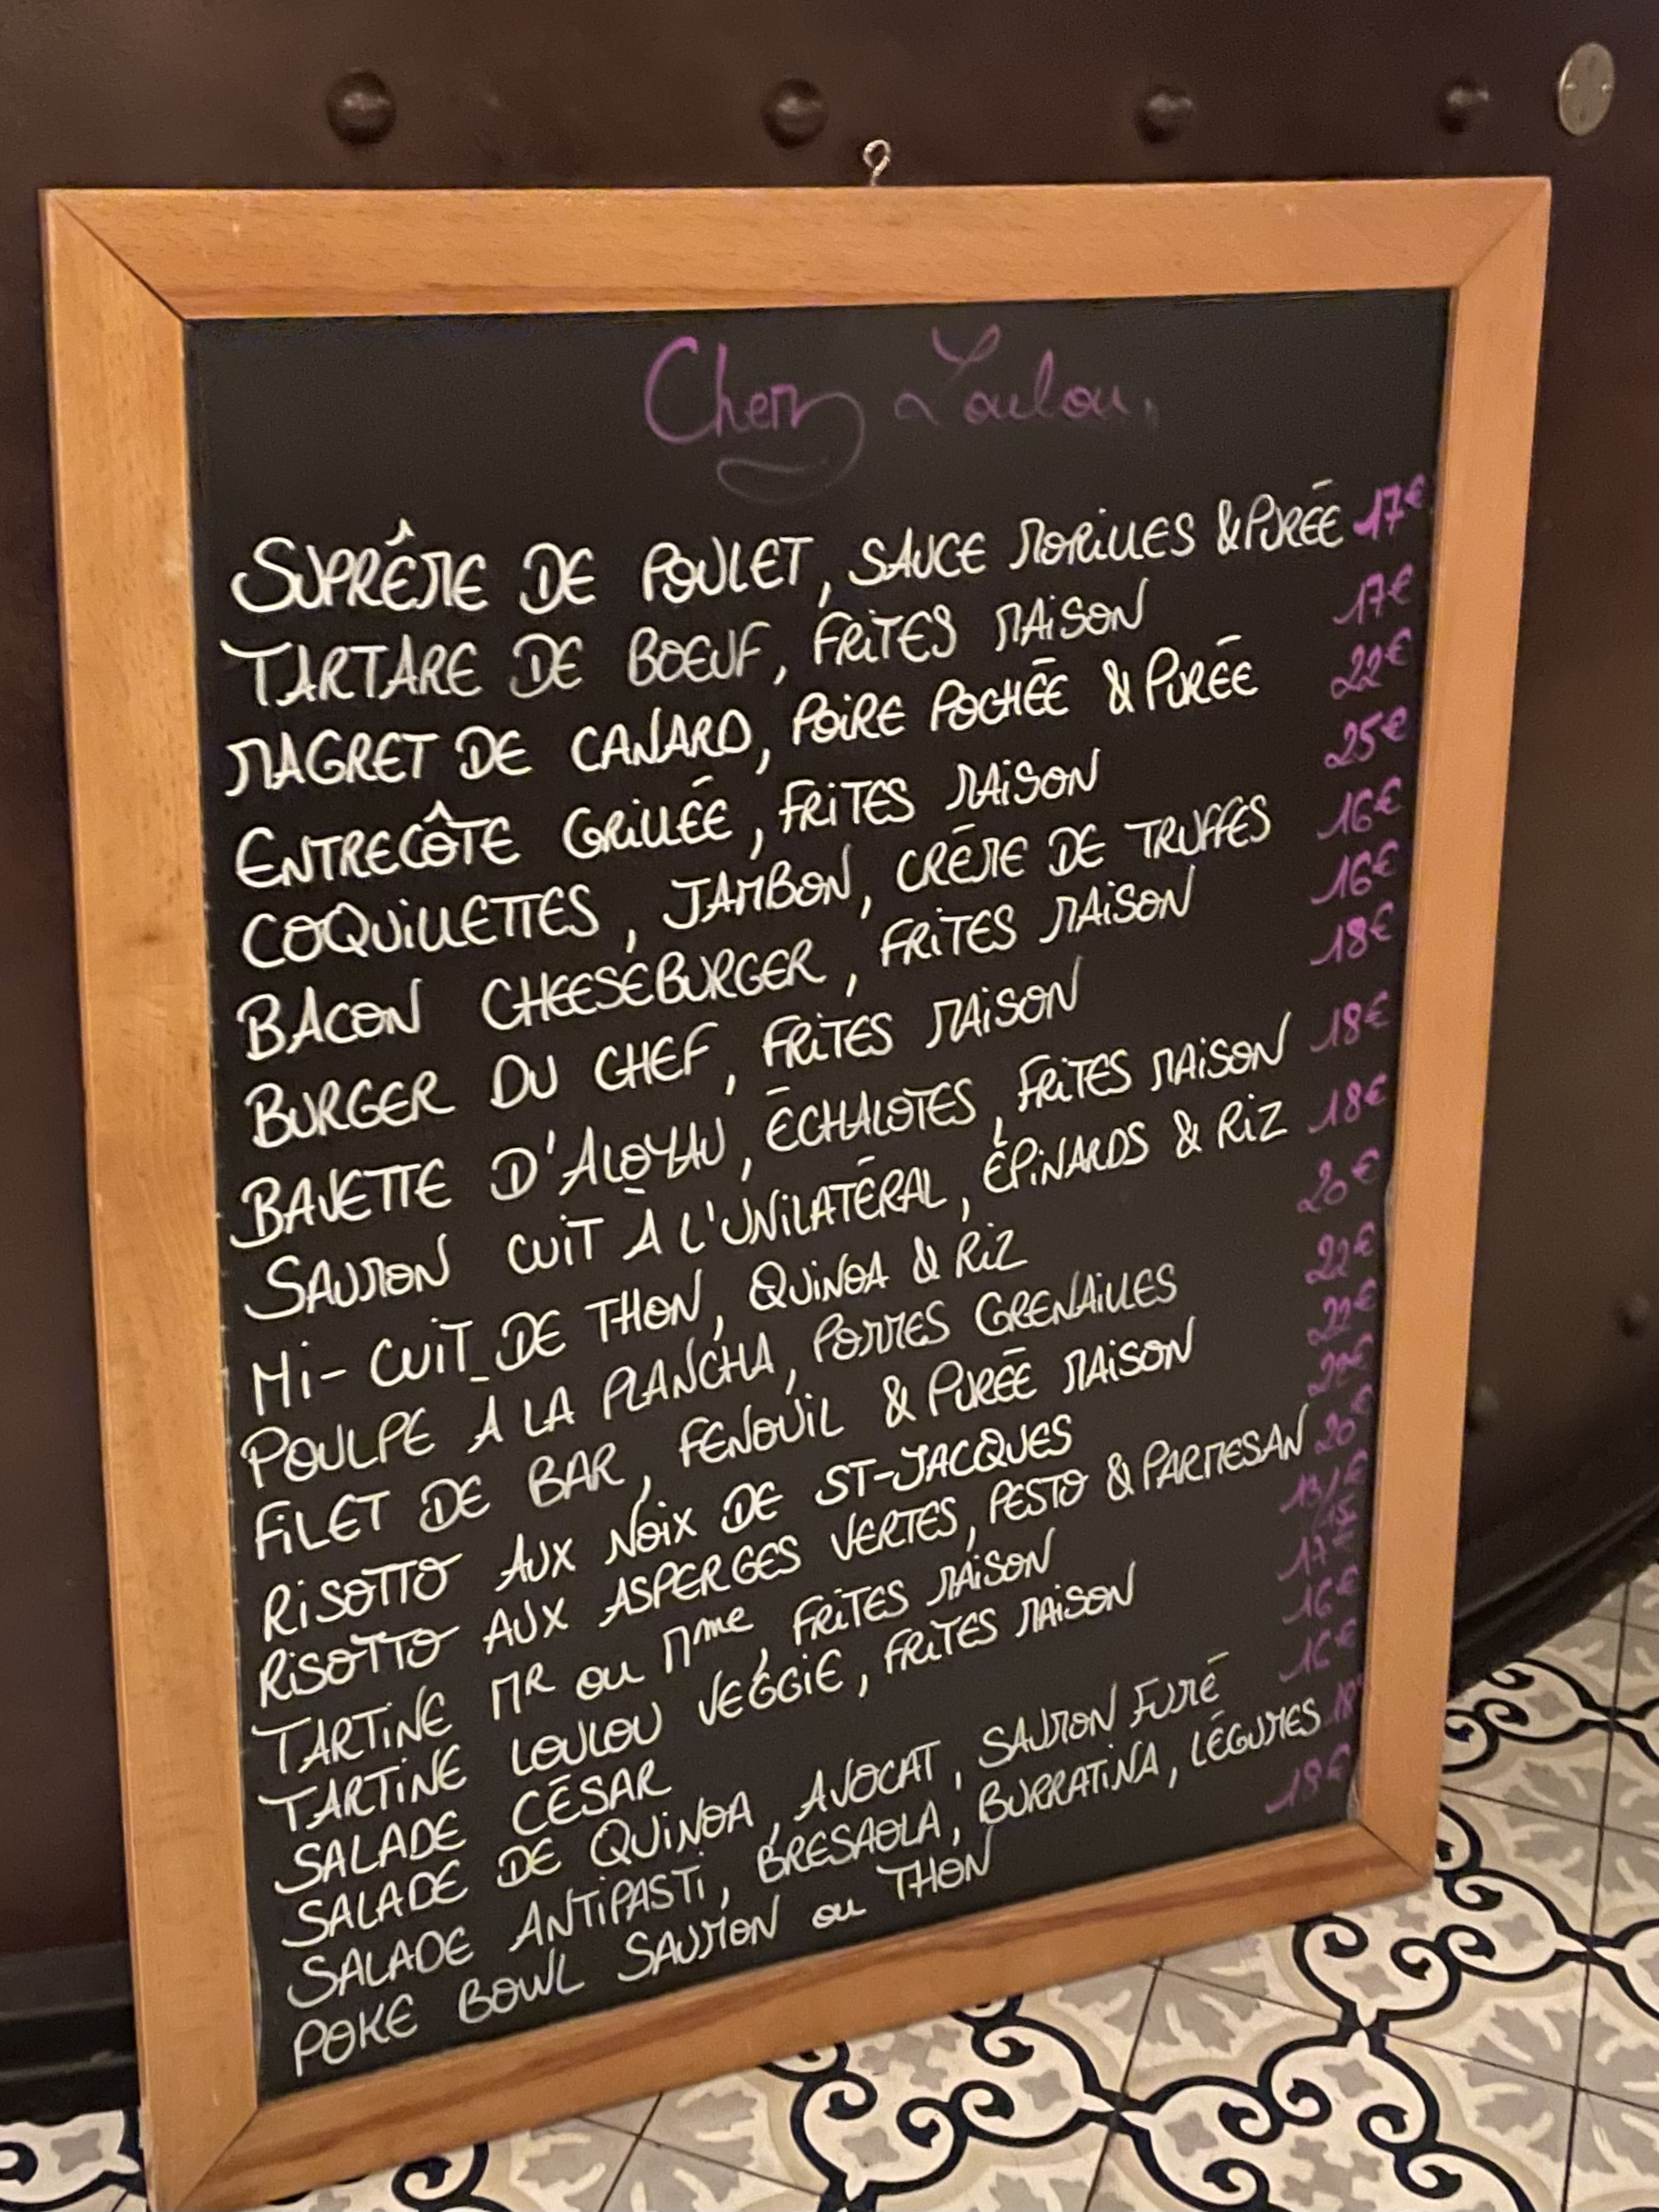 Chez Loulou
SUPRÊME DE POULET, SAUCE MORILLES & PURÉE 17€
TARTARE DE BOEUF, FRITES MAISON 17€
MAGRET DE CANARD, POIRE POCHÉE & PURÉE 22€
ENTRECÔTE GRILLÉE, FRITES MAISON 25€
COQUILLETTES, JAMBON, CRÈME DE TRUFFES 16€
BACON CHEESEBURGER, FRITES MAISON 16€
BURGER DU CHEF, FRITES MAISON 18€
BAVETTE D'ALOYAU, ÉCHALOTES, FRITES MAISON 18€
SAUMON CUIT À L'UNILATÉRAL, ÉPINARDS & RIZ 18€
MI-CUIT DE THON, QUINOA & RIZ 20€
POULPE À LA PLANCHA, POMMES GRENAILLES 22€
FILET DE BAR, FENOUIL & PURÉE MAISON 22€
RISOTTO AUX NOIX DE ST-JACQUES 22€
RISOTTO AUX ASPERGES VERTES, PESTO & PARMESAN 20€
TARTINE MR ou Mme, FRITES MAISON 15
TARTINE LOULOU VEGGIE, FRITES MAISON 17€
SALADE CÉSAR 16€
SALADE DE QUINOA, AVOCAT, SAUMON FUMÉ 16€
SALADE ANTIPASTI, BRESAOLA, BURRATINA, LÉGUMES 18€
POKE BOWL SAUMON ou THON 18€